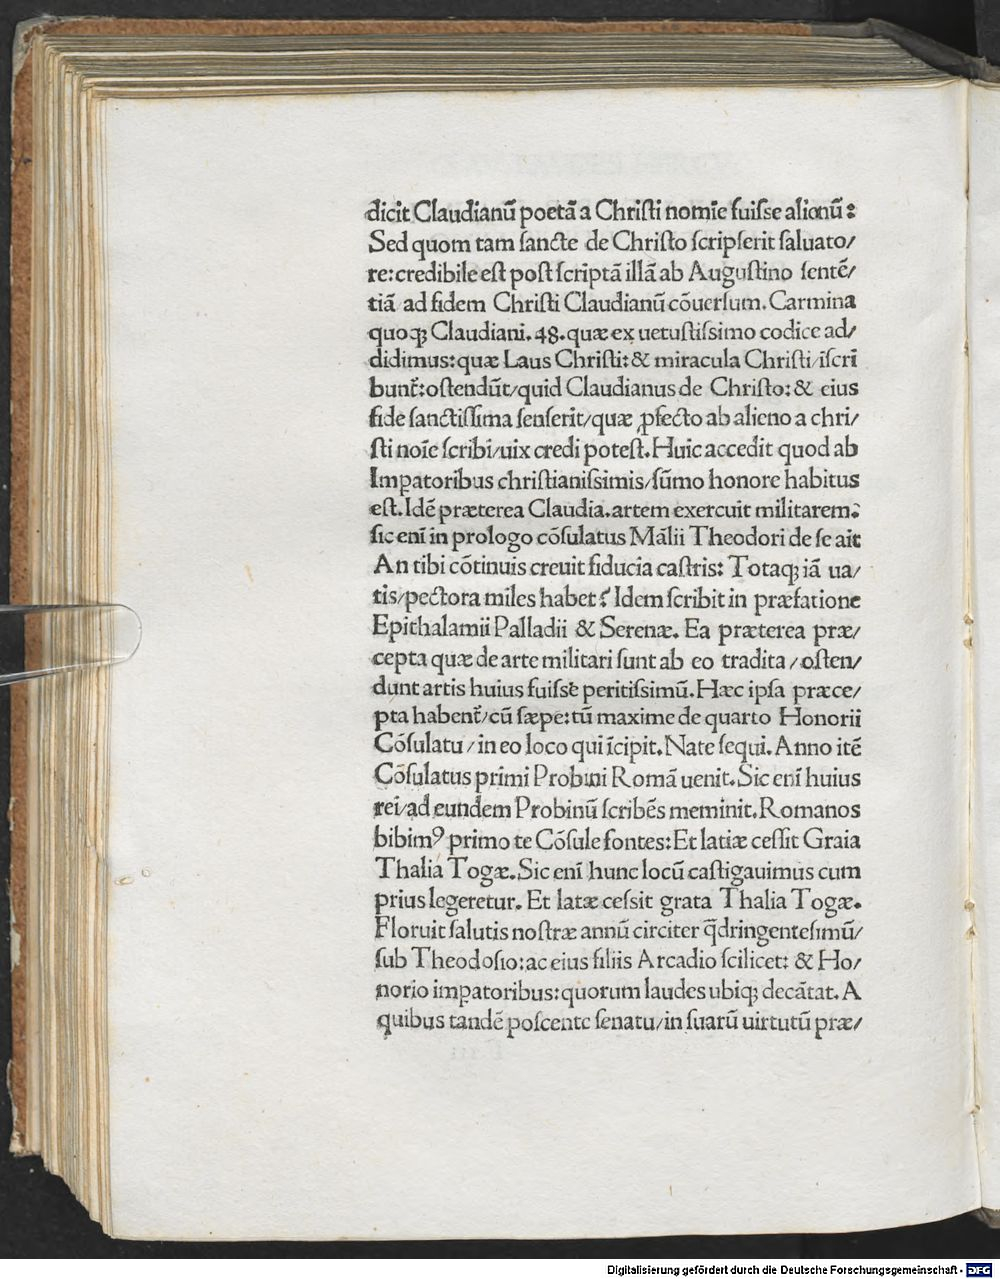 dicit Claudianū poetā a Christi nomīe fuisse alienū:
Sed quom tam sancte de Christo scripserit saluato/
re:credibile est post scriptā illā ab Augustino sentē/
tiā ad fidem Christi Claudianū cōuersum. Carmina
quoq; Claudiani.48.quæ ex uetustissimo codice ad/
didimus:quæ Laus Christi:& miracula Christi/īscri
bunt̄:ostendūt/quid Claudianus de Christo:& eius
fide sanctissima senserit/quæ ꝓfecto ab alieno a chri/
sti noīe scribi/uix credi potest. Huic accedit quod ab
Imꝑatoribus christianissimis/sūmo honore habitus
est. Idē præterea Claudia.artem exercuit militarem:
sic enī in prologo cōsulatus Mālii Theodori de se ait
An tibi cōtinuis creuit fiducia castris: Totaq; iā ua/
tis/pectora miles habet? Idem scribit in præfatione
Epithalamii Palladii & Serenæ. Ea præterea præ/
cepta quæ de arte militari sunt ab eo tradita/osten/
dunt artis huius fuisse peritissimū. Hæc ipsa præce/
pta habent̄/cū sæpe:tū maxime de quarto Honorii
Cōsulatu/in eo loco qui īcipit. Nate sequi. Anno itē
Cōsulatus primi Probini Romā uenit. Sic enī huius
rei/ad eundem Probinū scribēs meminit. Romanos
bibimꝰ primo te Cōsule fontes: Et latiæ cessit Graia
Thalia Togæ. Sic enī hunc locū castigauimus cum
prius legeretur. Et latæ cessit grata Thalia Togæ.
Floruit salutis nostræ annū circiter q̄dringentesimū/
sub Theodosio:ac eius filiis Arcadio scilicet: & Ho/
norio imꝑatoribus:quorum laudes ubiq; decātat. A
quibus tandē poscente senatu/in suarū uirtutū præ/
Digitalisierung gefördert durch die Deutsche Forschungsgemeinschaft - DFG